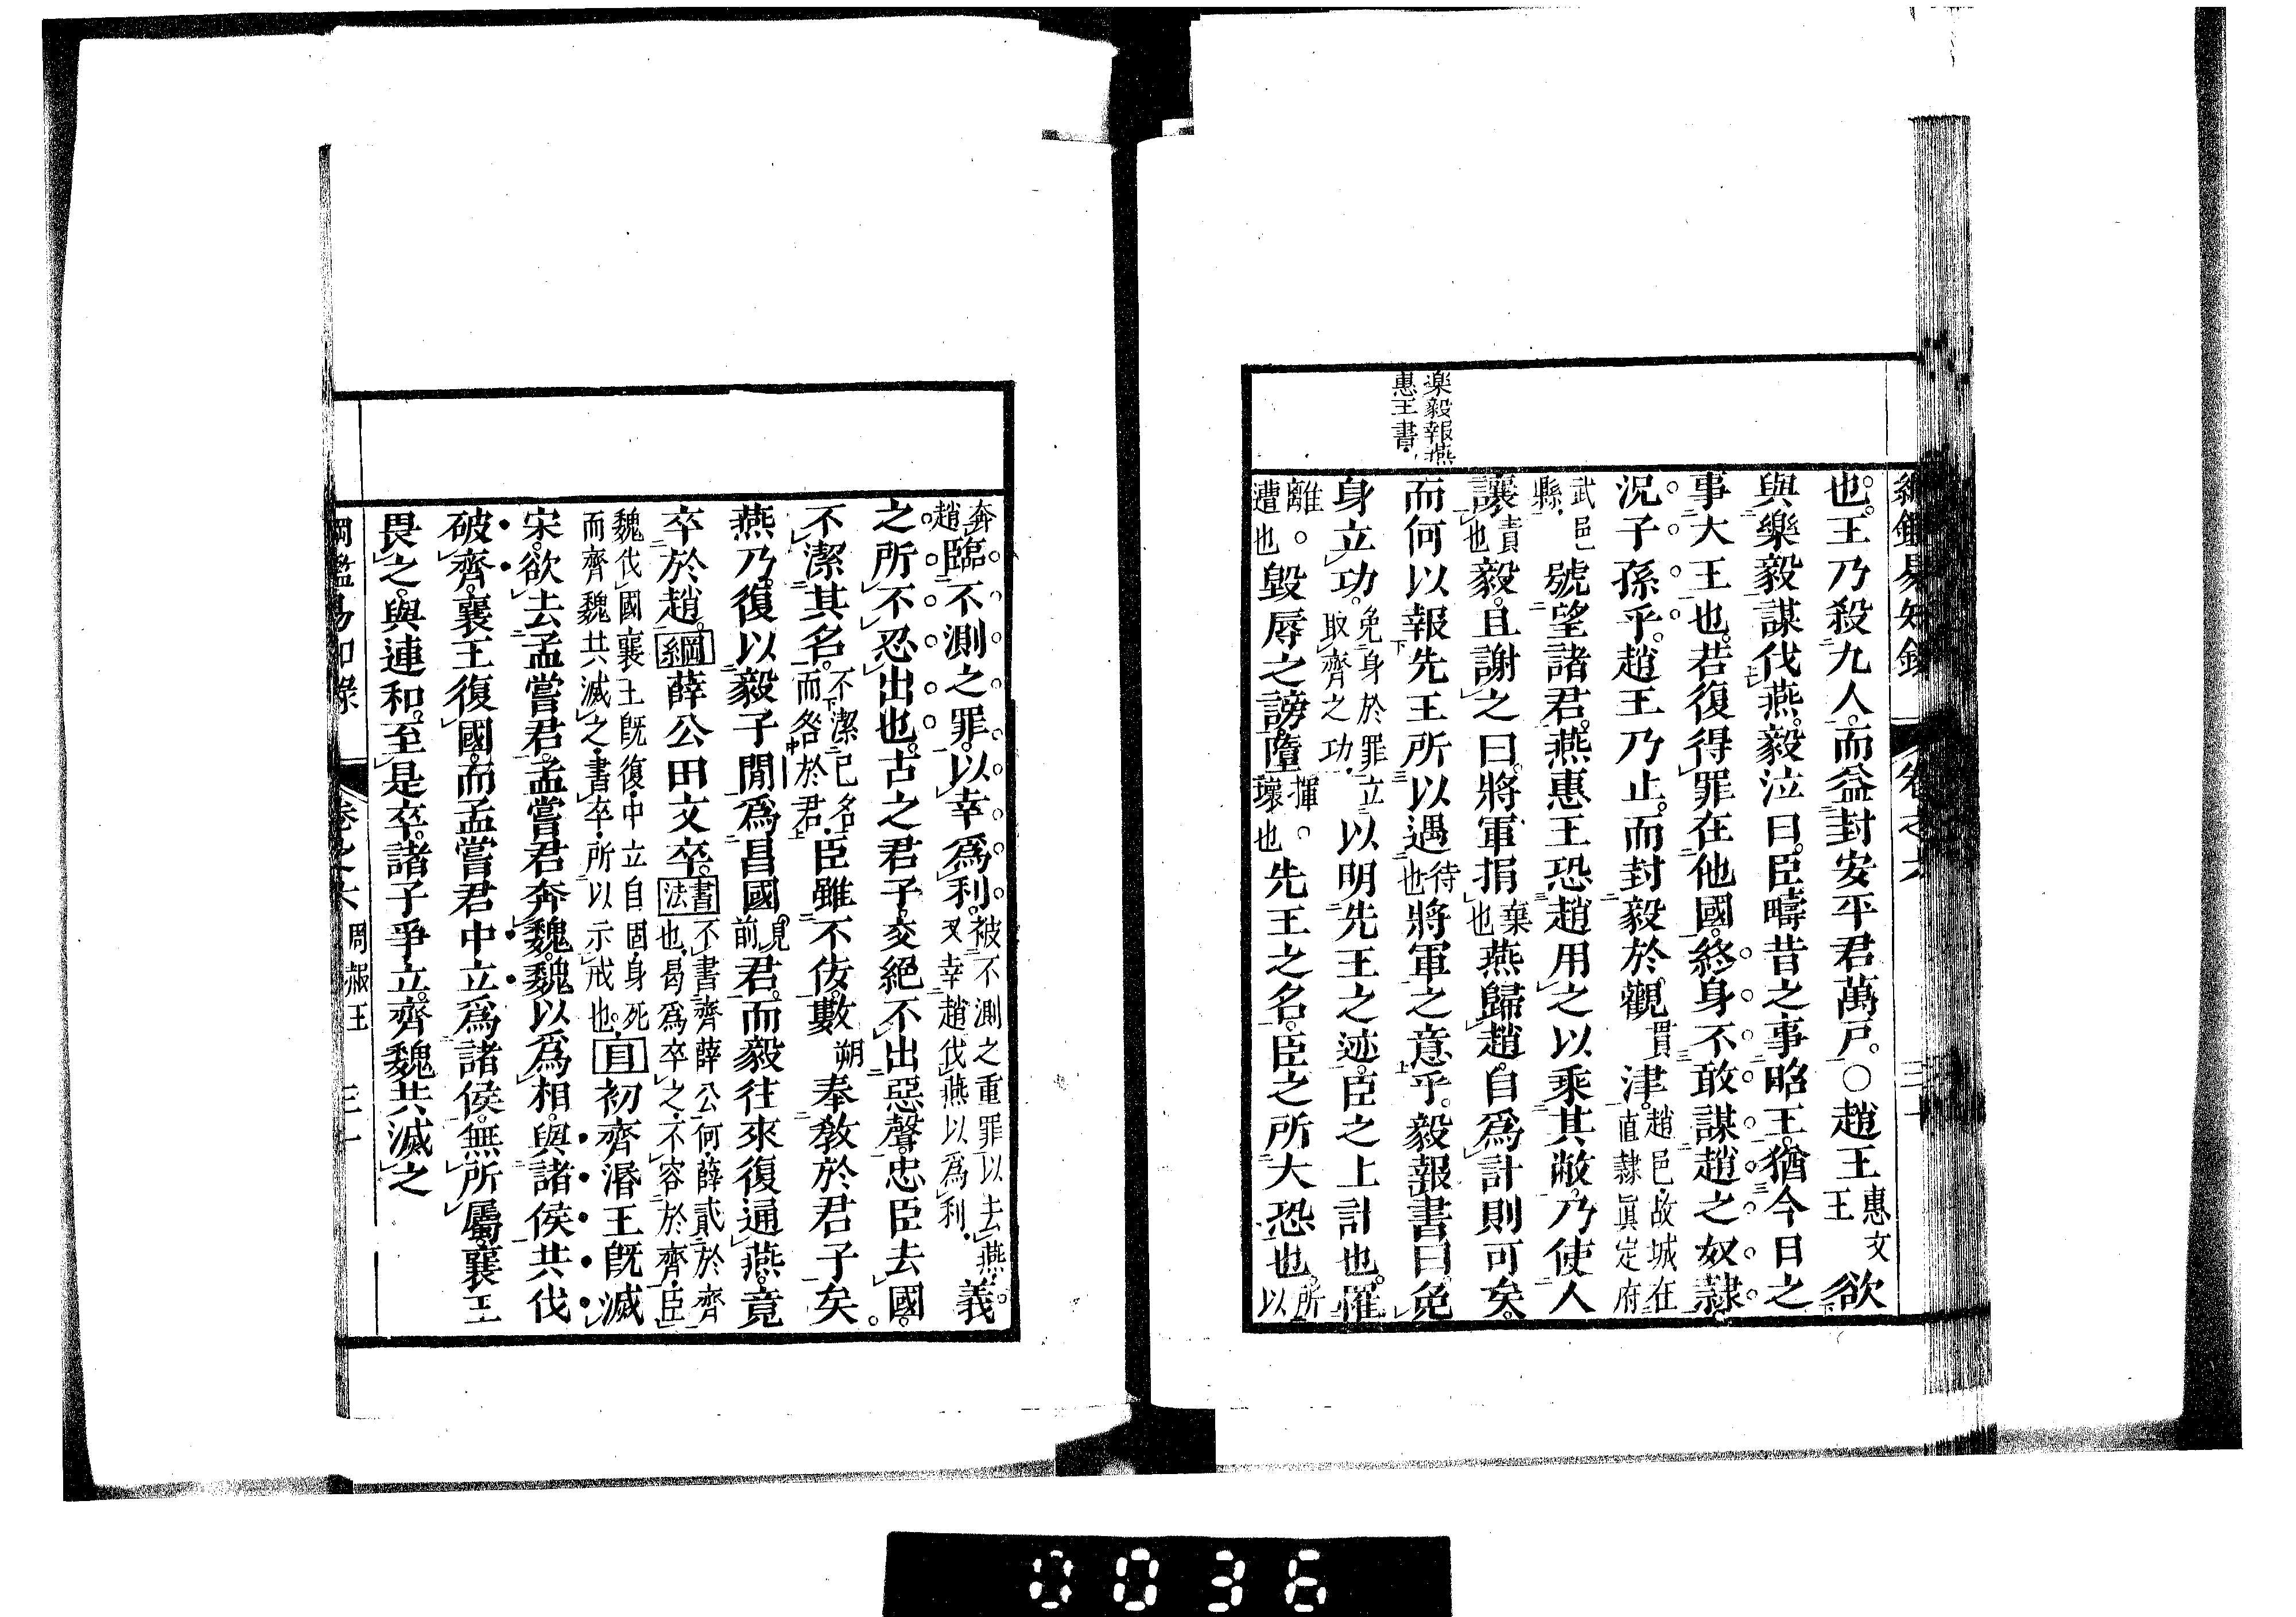 綱鑑易知錄 卷之六 三十
樂毅報燕
惠王書
也。王乃殺九人。而益封安平君萬戶。○趙王惠文王欲
與樂毅謀伐燕。毅泣曰。臣疇昔之事昭王。猶今日之
事大王也。若復得罪在他國。終身不敢謀趙之奴隸。
況子孫乎。趙王乃止。而封毅於觀貫津。趙邑。故城在直隸眞定府
武邑縣。號望諸君。燕惠王恐趙用之以乘其敝。乃使人
讓責也毅。且謝之曰。將軍捐棄也燕歸趙。自爲計則可矣。
而何以報先王所以遇待也將軍之意乎。毅報書曰。免
身立功。免身於罪立取齊之功。以明先王之迹。臣之上計也。罹
離。遭也毀辱之謗墮揮。壞也先王之名。臣之所大恐也。所以
奔趙臨不測之罪。以幸爲利。被不測之重罪以去燕。又幸趙伐燕以爲利。義
之所不忍出也。古之君子。交絕不出惡聲。忠臣去國。
不潔其名。不潔己名。而咎於君。臣雖不佞。數朔奉敎於君子矣。
燕乃復以毅子閒爲昌國見前君。而毅往來復通燕。竟
卒於趙。綱薛公田文卒。書法不書齊薛公何。薛貳於齊也。曷爲卒之。不容於齊。臣
魏伐國。襄王旣復。中立自固。身死而齊魏共滅之。書卒。所以示戒也。目初齊湣王旣滅
宋。欲去孟嘗君。孟嘗君奔魏。魏以爲相。與諸侯共伐
破齊。襄王復國。而孟嘗君中立爲諸侯。無所屬。襄王
畏之。與連和。至是卒。諸子爭立。齊魏共滅之
綱鑑易知錄 卷之六 周赧王 三十一
0036